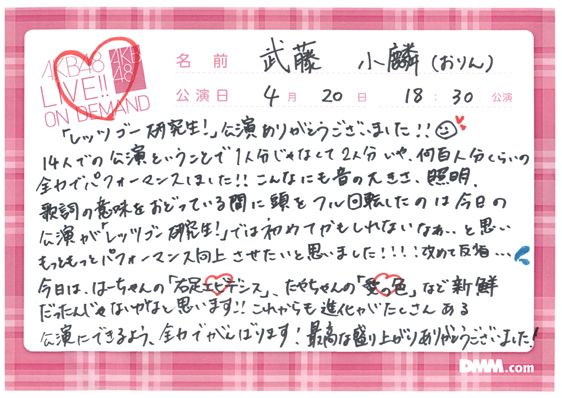 AKB48 LIVE!! ON DEMAND
AKB48
名前 武藤 小麟(おりん)
公演日 4月 20日 18:30 公演
「レッツゴー研究生!」公演ありがとうございました!!
14人での公演ということで1人分じゃなくて2人分いや、何百人分くらいの
全力でパフォーマンスしました!!こんなにも音の大きさ、照明、
歌詞の意味をおどっている間に頭をフル回転したのは今日の
公演が「レッツゴー研究生!」では初めてかもしれないなぁ…と思い
もっともっとパフォーマンス向上させたいと思いました!!!!改めて反省…
今日は、はーちゃんの「右足エビデンス」、たやちゃんの「愛の色」など新鮮
だったんじゃないかなと思います!!これからも進化がたくさんある
公演にできるよう、全力でがんばります!最高な盛り上がりありがとうございました!
DMM.com